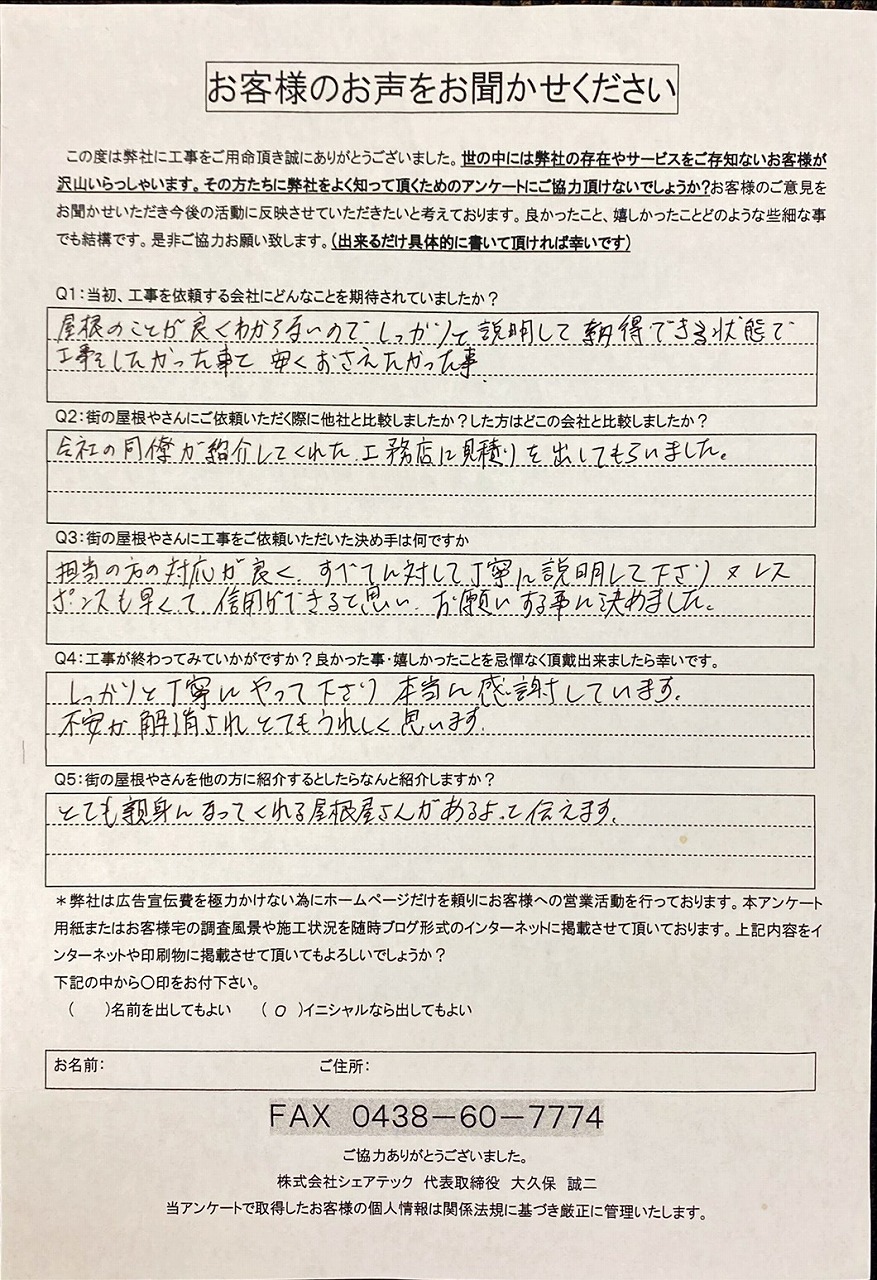 お客様のお声をお聞かせください
この度は弊社に工事をご用命頂き誠にありがとうございました。世の中には弊社の存在やサービスをご存知ないお客様が
沢山いらっしゃいます。その方たちに弊社をよく知って頂くためのアンケートにご協力頂けないでしょうか?お客様のご意見を
お聞かせいただき今後の活動に反映させていただきたいと考えております。良かったこと、嬉しかったことどのような些細な事
でも結構です。是非ご協力お願い致します。(出来るだけ具体的に書いて頂ければ幸いです)
Q1:当初、工事を依頼する会社にどんなことを期待されていましたか?
屋根のことが良くわからないので しっかりと説明して納得できる状態で
工事をしたかった事と 安くおさえたかった事。
Q2:街の屋根やさんにご依頼いただく際に他社と比較しましたか?した方はどこの会社と比較しましたか?
会社の同僚が紹介してくれた 工務店に見積りを出してもらいました。
Q3:街の屋根やさんに工事をご依頼いただいた決め手は何ですか
担当の方の対応が良く、すべてに対して丁寧に説明して下さり 又 レス
ポンスも早くて 信用ができると思い、お願いする事に決めました。
Q4:工事が終わってみていかがですか?良かった事・嬉しかったことを忌憚なく頂戴出来ましたら幸いです。
しっかりと丁寧にやって下さり 本当に感謝しています。
不安が解消されとてもうれしく思います。
Q5:街の屋根やさんを他の方に紹介するとしたらなんと紹介しますか?
とても親身になってくれる屋根屋さんがあるよって伝えます。
*弊社は広告宣伝費を極力かけない為にホームページだけを頼りにお客様への営業活動を行っております。本アンケート
用紙またはお客様宅の調査風景や施工状況を随時ブログ形式のインターネットに掲載させて頂いております。上記内容をイ
ンターネットや印刷物に掲載させて頂いてもよろしいでしょうか?
下記の中から〇印をお付下さい。
( )名前を出してもよい (○)イニシャルなら出してもよい
お名前: ご住所:
FAX 0438-60-7774
ご協力ありがとうございました。
株式会社シェアテック 代表取締役 大久保 誠二
当アンケートで取得したお客様の個人情報は関係法規に基づき厳正に管理いたします。